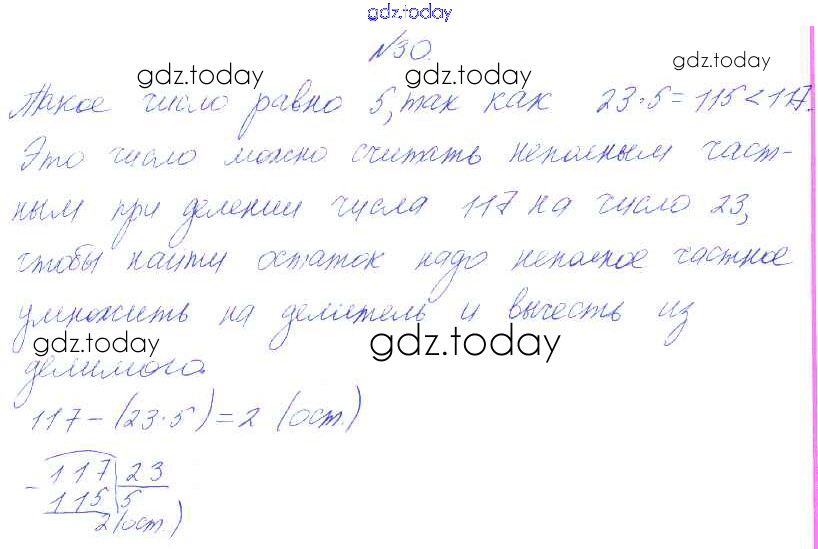 gdz.today
№30.
gdz.today gdz.today gdz.today
Такое число равно 5, так как 23·5=115<117.
Это число можно считать неполным част-
ным при делении числа 117 на число 23,
чтобы найти остаток надо неполное частное
умножить на делитель и вычесть из
gdz.today gdz.today
делимого.
117-(23·5)=2 (ост.)
-117 23
115 5
2(ост.)